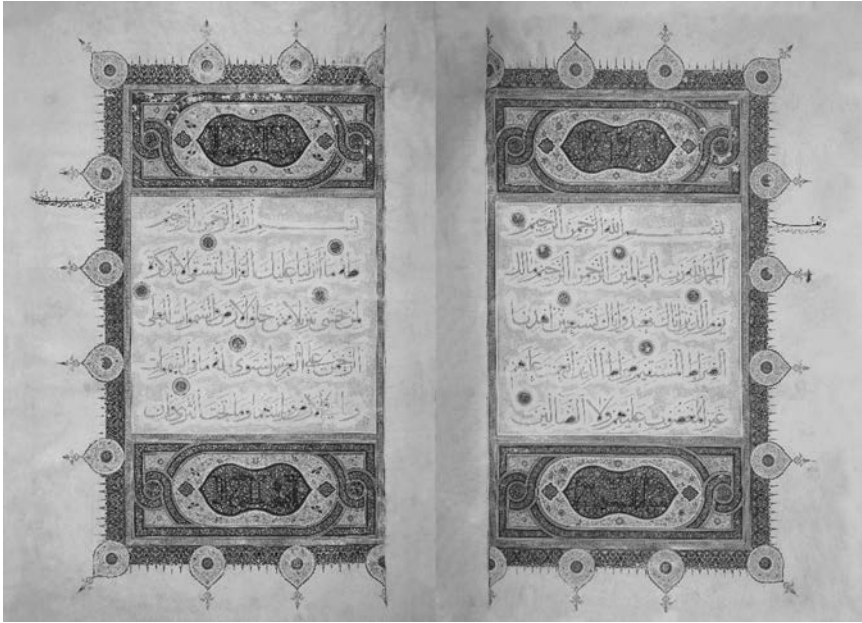 بسم الله الرحمن الرحيم
الحمد لله رب العالمين الرحمن الرحيم مالك
يوم الدين اياك نعبد واياك نستعين اهدنا
الصراط المستقيم صراط الذين انعمت عليهم
غير المغضوب عليهم ولا الضالين
بسم الله الرحمن الرحيم
طه ما انزلنا عليك القران لتشقى الا تذكرة
لمن يخشى تنزيلا ممن خلق الارض والسموات العلى
الرحمن على العرش استوى له ما في السموات
وما في الارض وما بينهما وما تحت الثرى وان